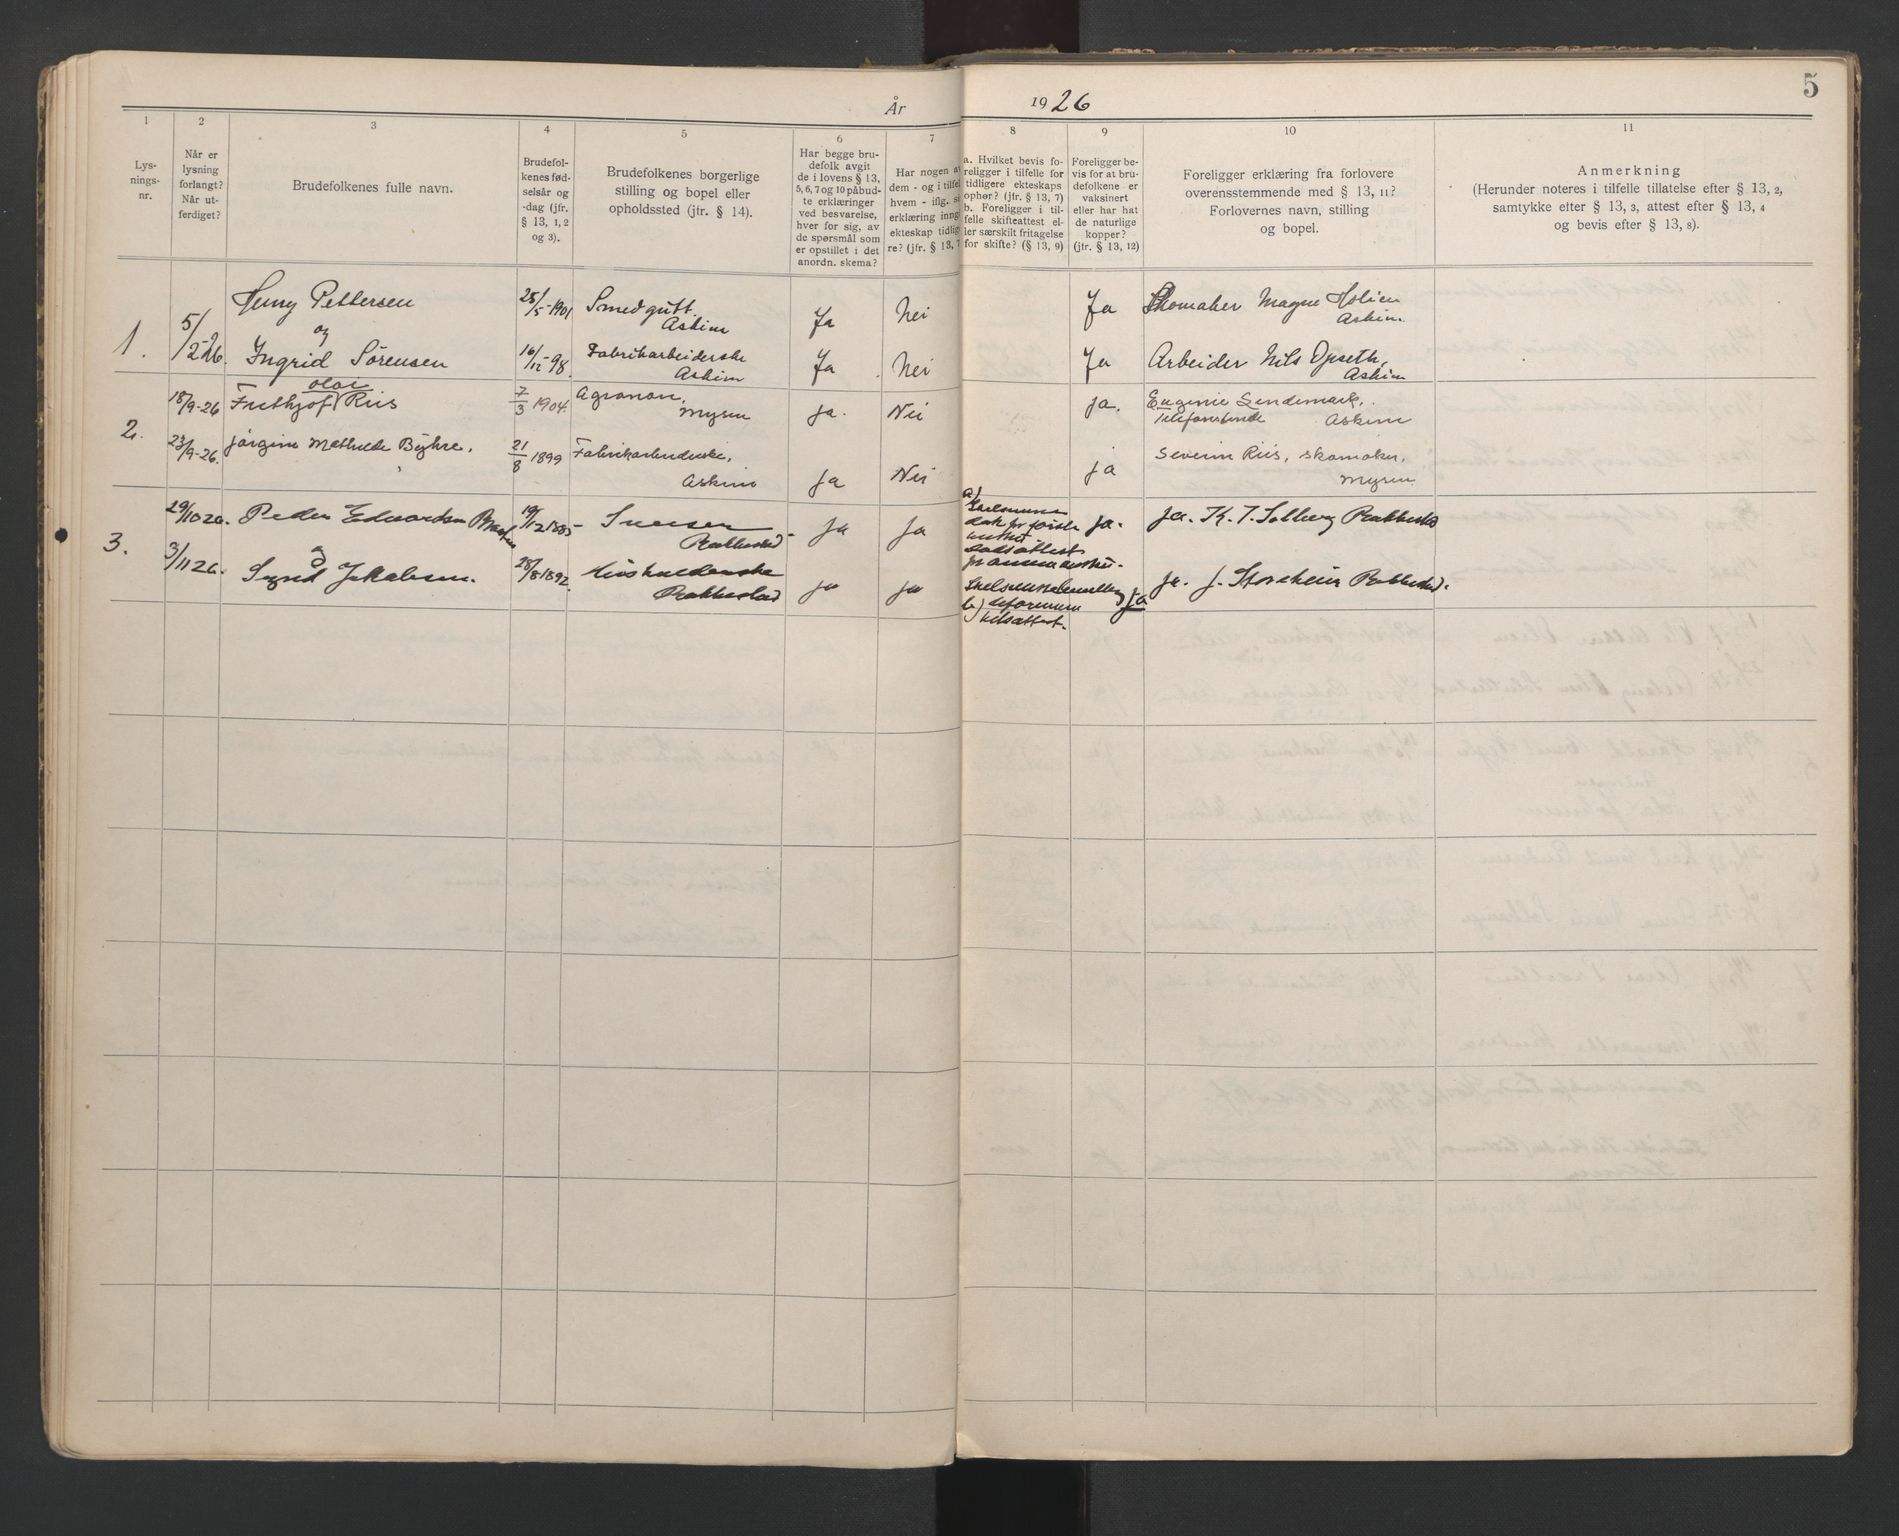 5
År
19 26
1
2
3
4
5
6
7
8
9
10
11
Lys-
nings-
nr.
Når er
lysning
forlangt?
Når ut-
ferdiget?
Brudefolkenes fulle navn.
Brudefol-
kenes fød-
selsår og
-dag (jfr.
§ 13, 1, 2
og 3).
Brudefolkenes borgerlige
stilling og bopel eller
opholdssted (jfr. § 14).
Har begge bru-
defolk avgit
de i lovens § 13,
5, 6, 7 og 10 påbud-
te erklæringer
ved besvarelse,
hver for sig, av
de spørsmål som
er opstillet i det
anordn. skema?
Har nogen a
dem - og i tilfel
hvem - iflg. s
erklæring inng
ekteskap tidlig
re? (jfr. § 13, 7
a. Hvilket bevis fo-
religger i tilfelle for
tidligere ekteskaps
ophør? (jfr. § 13, 7)
b. Foreligger i til-
felle skifteattest el-
ler særskilt fritagelse
for skifte? (§ 13, 9)
Foreligger be-
vis for at bru-
defolkene er
vaksinert
eller har hat
de naturlige
kopper?
(jfr. § 13, 12)
Foreligger erklæring fra forlovere
overensstemmende med § 13, 11?
Forlovernes navn, stilling
og bopel.
Anmerkning
(Herunder noteres i tilfelle tillatelse efter § 13, 2,
samtykke efter § 13, 3, attest efter § 13, 4
og bevis efter § 13, 8).
1.
5/2-26.
Henry Pettersen
25/5-1901
Smedgutt.
Askim
Ja
Nei
Ja
Skomaker Magne Holien
Askim.
og
Ingrid Sørensen
16/12-98.
Fabrikarbeiderske
Askim
Ja
Nei
Ja
Arbeider Nils Opseth,
Askim
2.
18/9-26
Olai
Frithjof Riis
7/3 1904.
Agronom,
Mysen
ja.
Nei
ja.
Eugenie Lendemark,
Askim
23/9-26.
Jørgine Mathilde Byhre.
21/8 1899
Fabrikarbeiderske,
Askim
ja
Nei
ja
Severin Riis, skomaker,
Mysen
3.
29/10 26.
Peder Edvardsen
19/12 1885
Rakkestad
ja
ja
a)
ja.
ja. K. T. Solberg Rakkestad
og
3/11 26.
Jakobsen.
28/8 1892.
Husholderske
Rakkestad
ja
ja
b)
ja
ja. J. Storeheim Rakkestad.